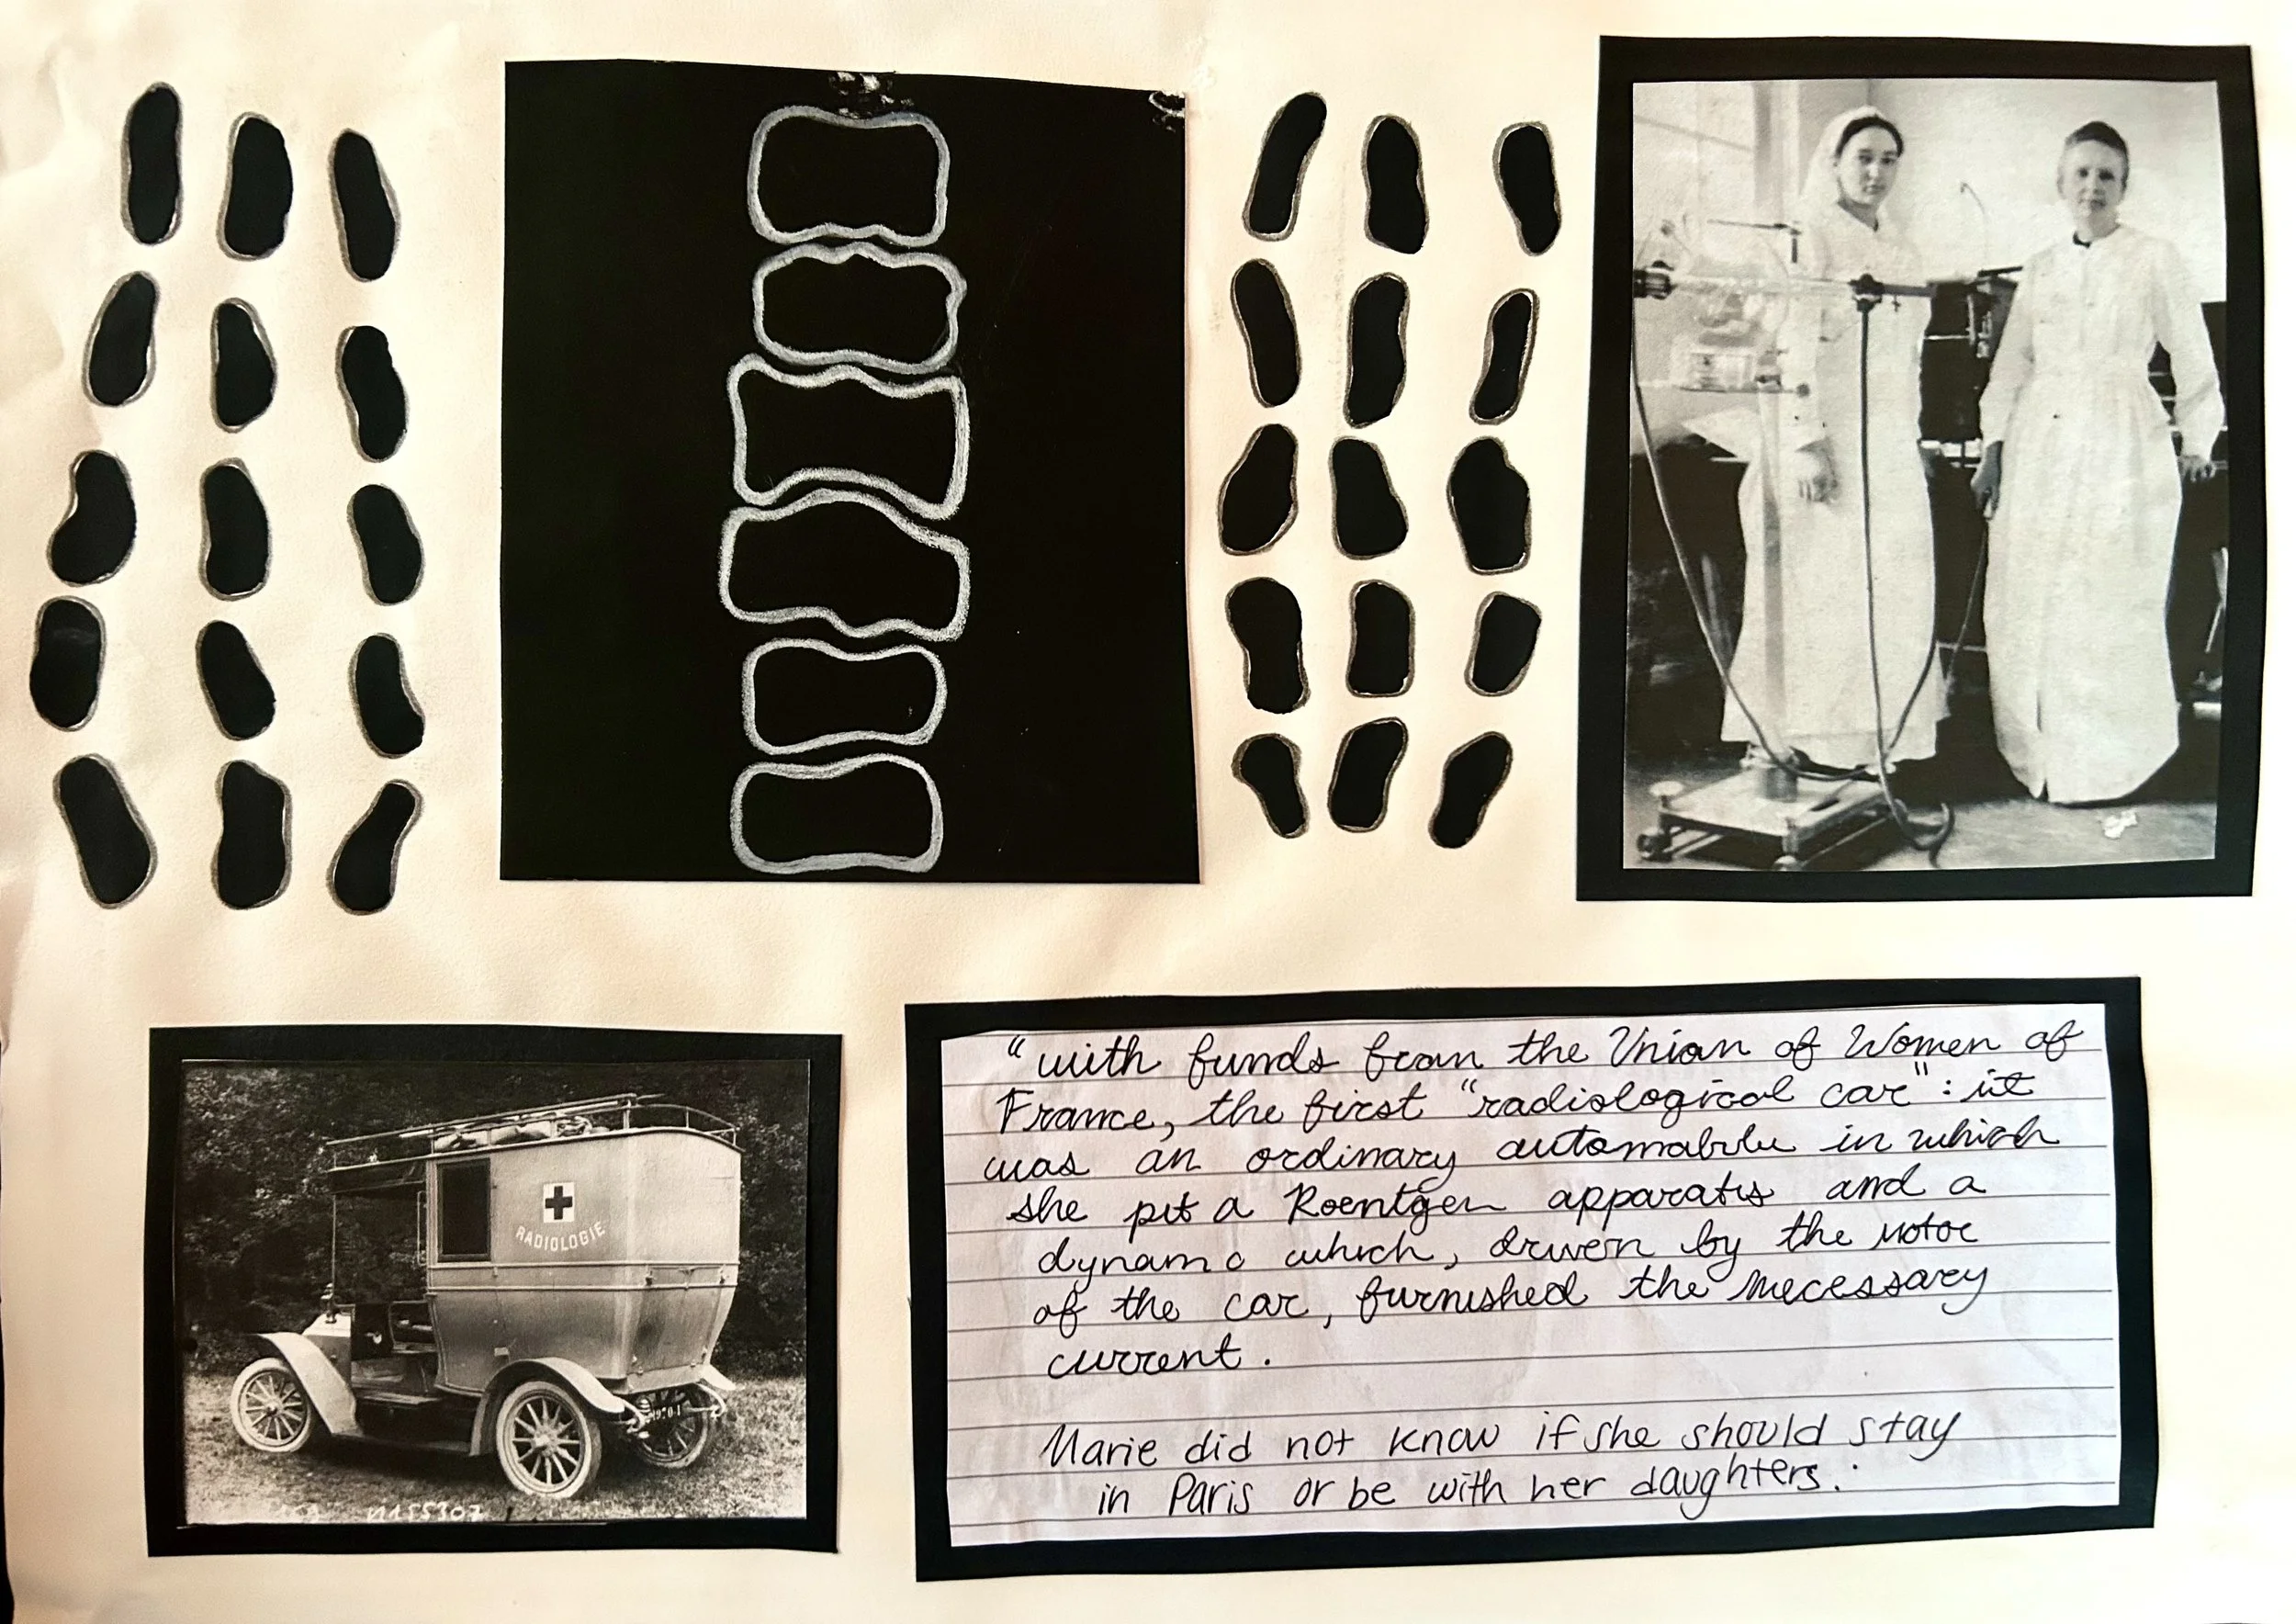 RADIOLOGIE
"with funds from the Union of Women of
France, the first "radiological car": it
was an ordinary automobile in which
she put a Roentgen apparatus and a
dynamo which, driven by the motor
of the car, furnished the necessary
current.
Marie did not know if she should stay
in Paris or be with her daughters.